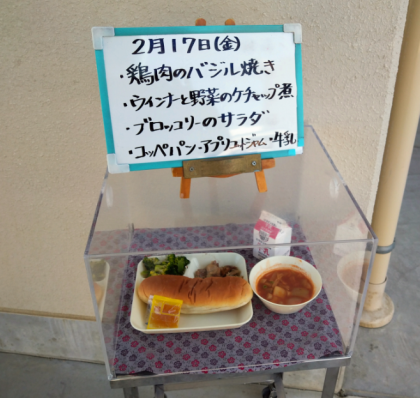 2月17日(金)
・鶏肉のバジル焼き
・ウインナーと野菜のケチャップ煮
・ブロッコリーのサラダ
・コッペパン・アプリコットジャム・牛乳